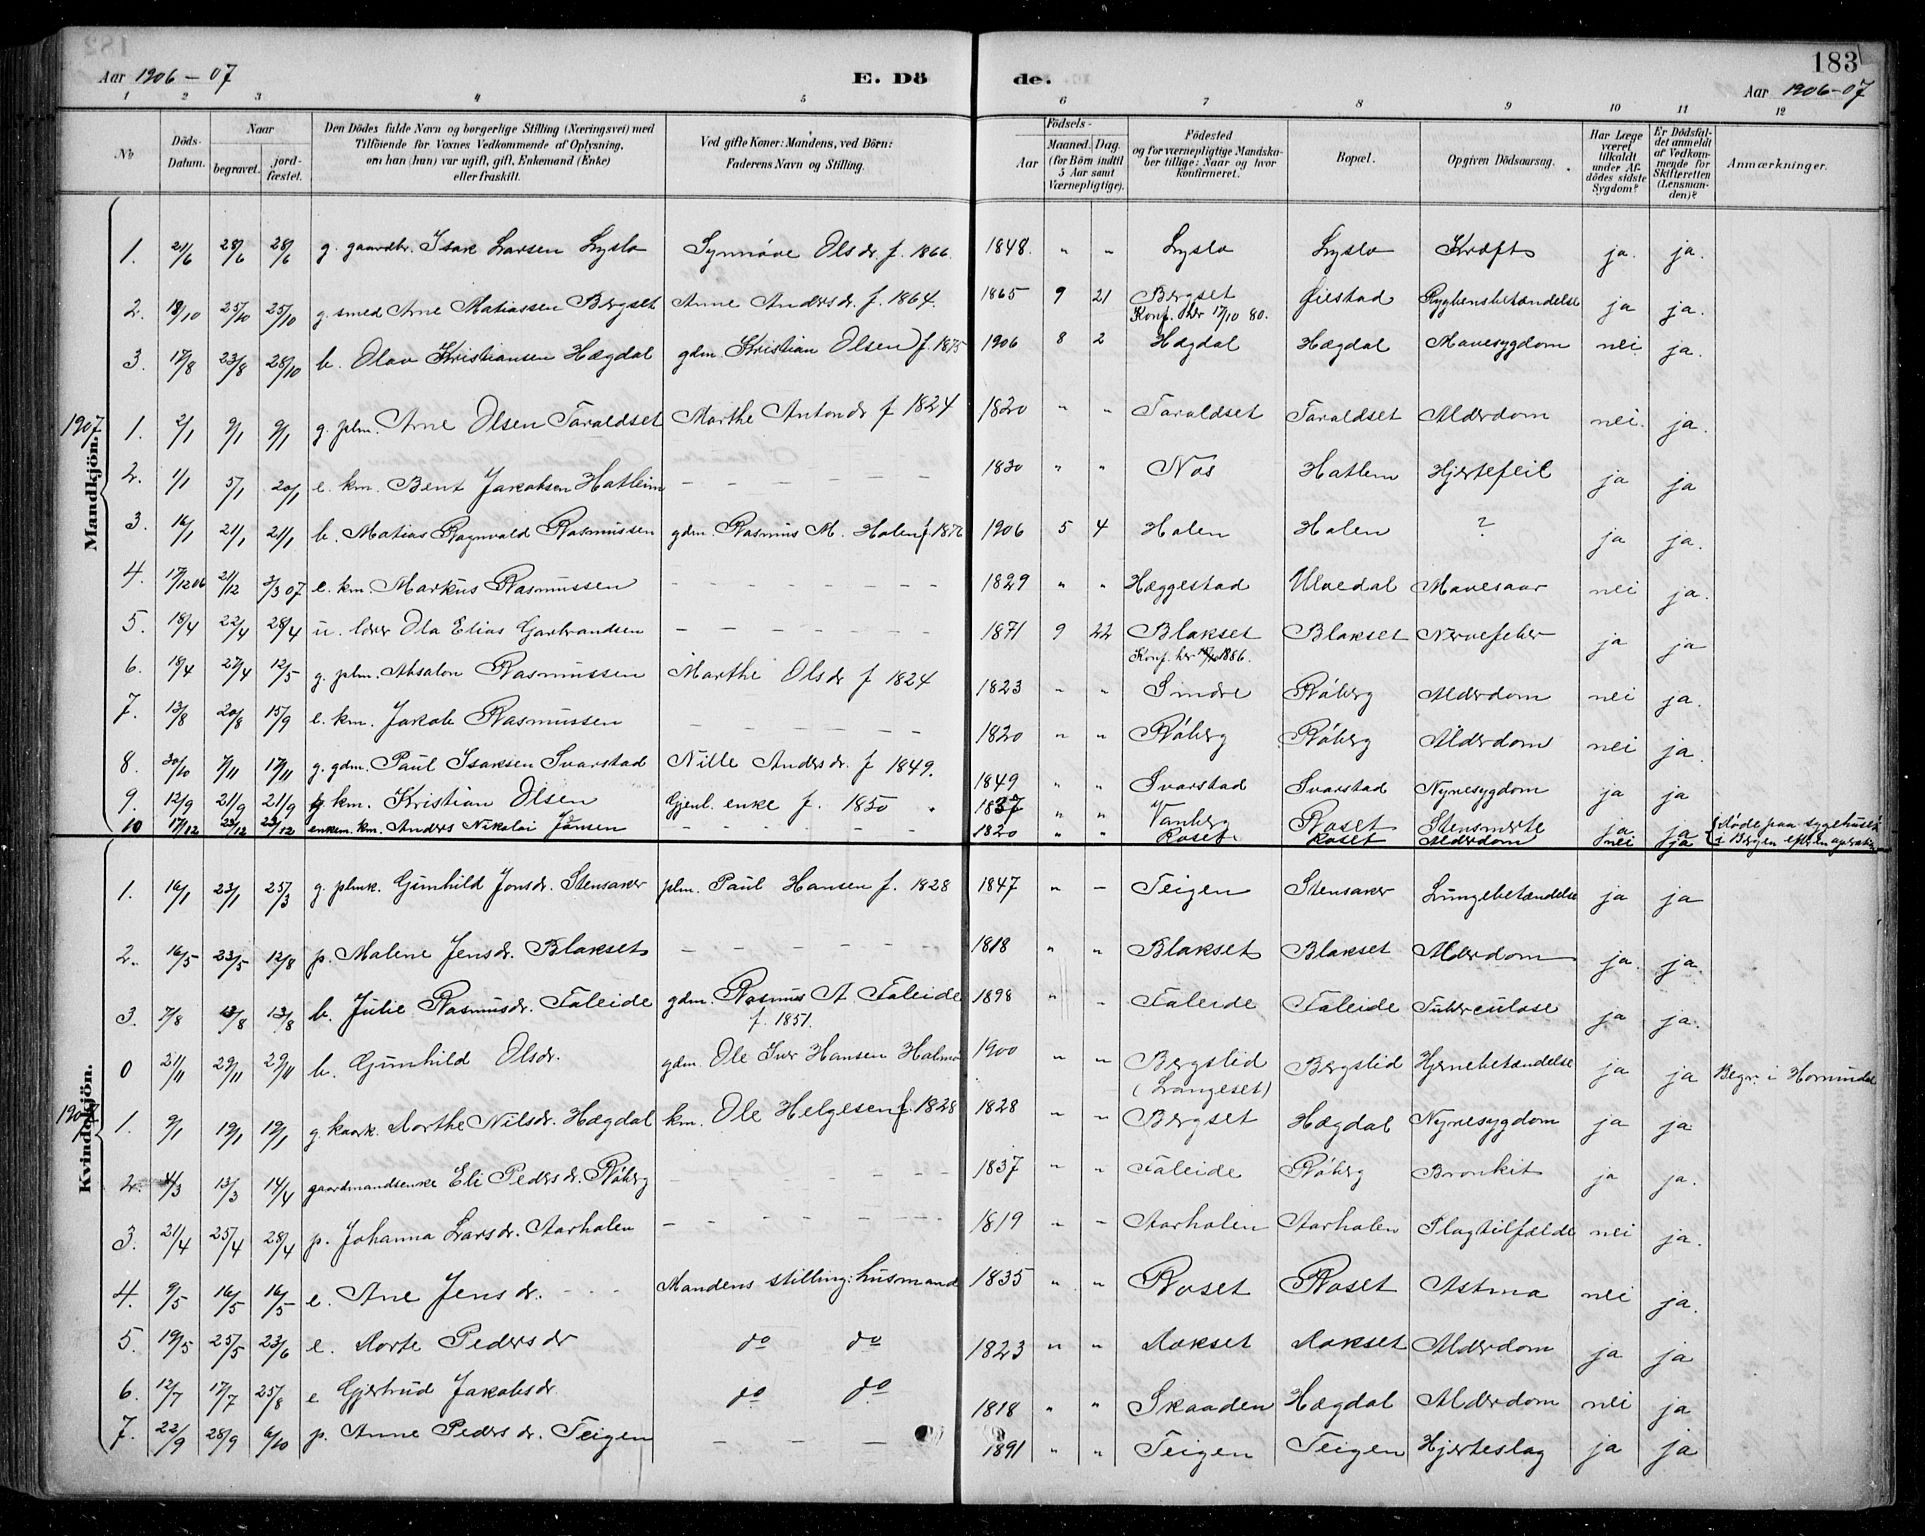 183
Aar 1906-07 E. Dö de. Aar 1906-07
1 2 3 4 5 6 7 8 9 10 11 12
No Döds-Datum. Naar begravet. jord-fæstet. Den Dödes fulde Navn og borgerlige Stilling (Næringsvei) med Tilföiende for Voxnes Vedkommende af Oplysning, om han (hun) var ugift, gift, Enkemand (Enke) eller fraskilt. Ved gifte Koner: Mandens, ved Börn: Faderens Navn og Stilling. Födsels- Aar Maaned. Dag. (for Börn indtil 5 Aar samt Værnepligtige). Födested og for værnepligtige Mandskaber tillige: Naar og hvor konfirmeret. Bopæl. Opgiven Dödsaarsag. Har Læge været tilkaldt under Afdödes sidste Sygdom? Er Dödsfaldet anmeldt af Vedkommende for Skifteretten (Lensmanden)? Anmærkninger.
Mandkjön.
1. 21/6 28/6 28/6 g. gaardbr. Isak Larsen Lyslo Synnöve Olsdr. f. 1866. 1848. " " Lyslo Lyslo Kræft ja. ja.
2. 18/10 25/10 25/10 g. smed Arne Matiassen Bergset Anne Andersdr. f. 1864. 1865 9 21 Bergset Øiestad Rygbensbetændelse ja ja.
Konf. her 17/10 80.
3. 17/8 23/8 28/10 b. Olav Kristiansen Hægdal gdm. Kristian Olsen f. 1875 1906 8 2 Hægdal Hægdal Mavesygdom nei ja.
1907
1. 2/1 9/1 9/1 g. plm. Arne Olsen Taraldset Marthe Antondr f 1824 1820 " " Taraldset Taraldset Alderdom nei. ja.
2. 1/1 5/1 20/1 e. km. Bent Jakobsen Hatlem - - - 1830 " " Nos Hatlem Hjertefeil ja ja
3. 16/1 21/1 21/1 b. Matias Ragnvald Rasmussen gdm. Rasmus M. Holen f. 1876 1906 5 4 Holen Holen ? ja ja.
4. 17/12 06 21/12 3/3 07 e. km. Markus Rasmussen - - - 1829 " " Hæggestad Ulvedal Mavesaar nei ja.
5. 18/4 22/4 28/4 u. lærer Ola Elias Garbrandsen - - - 1871 9 22 Blakset Blakset Nervefeber ja ja
Konf. her 1886.
6. 18/4 27/4 12/5 g. plm. Absalon Rasmussen Marthe Olsdr f 1824 1823 " " Sindre Röberg Alderdom nei ja.
7. 13/8 20/8 15/9 e. km. Jakob Rasmussen - - - 1820 " " Röberg Röberg Alderdom nei ja.
8. 30/10 7/11 17/11 g. gdm. Paul Isaksen Svarstad Nille Andersdr. f 1849. 1849 " " Svarstad Svarstad Nyresygdom ja ja
9. 12/9 21/9 21/9 g. km. Kristian Olsen Gjenl. enke f. 1850 1837 " " Vanberg Roset Stensmerte ja ja Döde paa sygehuset i Bergen efter en operation
10 17/12 23/12 23/12 enkem. km. Anders Nikolai Jönsen - - - 1820 " " Roset Roset Alderdom nei ja
Kvindekjön.
1. 16/1 23/1 25/3 g. plmk. Gunhild Jonsdr. Stensaker plm. Paul Hansen f. 1828 1847 " - Teigen Stensaker Lungebetændelse ja ja
2. 16/5 23/5 12/8 p. Malene Jensdr. Blakset - - - 1818 " " Blakset Blakset Alderdom ja. ja.
3. 7/8 13/8 13/8 b. Julie Rasmusdr. Faleide gdm. Rasmus A Faleide 1898 " " Faleide Faleide Tuberculose ja ja.
f. 1851.
0 21/11 29/11 29/11 b. Gunhild Olsdr. gdm. Ole Iver Hansen 1900 " " Bergslid Bergslid Hjernebetændelse ja ja Begr. i Hornindal
(Langeset)
1907
1. 9/1 19/1 19/1 g. kaark. Dorthe Nilsdr. Hægdal km. Ole Helgesen f. 1828 1828 " " Bergset Hægdal Nyresygdom ja ja
2. 4/3 13/3 14/4 gaardmandsenke Eli Pedersdr. Röberg - - - 1837 " " Faleide Röberg Bronkit ja ja.
3. 21/4 25/4 28/4 p. Johanna Larsdr. Aarholen - - - 1819 " - Aarholen Aarholen Slagtilfælde nei ja.
4. 9/5 16/5 16/5 e. Ane Jensdr. Mandens stilling: husmand 1835 " " Roset Roset Astma nei ja.
5. 19/5 25/5 23/6 e. Dorte Pedersdr do do 1823 " " Dokset Dokset Alderdom ja ja
6. 12/7 17/7 25/8 e Gjertrud Jakobsdr. do do 1818 " " Skaaden Hægdal Alderdom nei ja
7. 22/9 28/9 6/10 p. Anne Pedersdr. Teigen - - - 1891 " " Teigen Teigen Hjerteslag ja ja